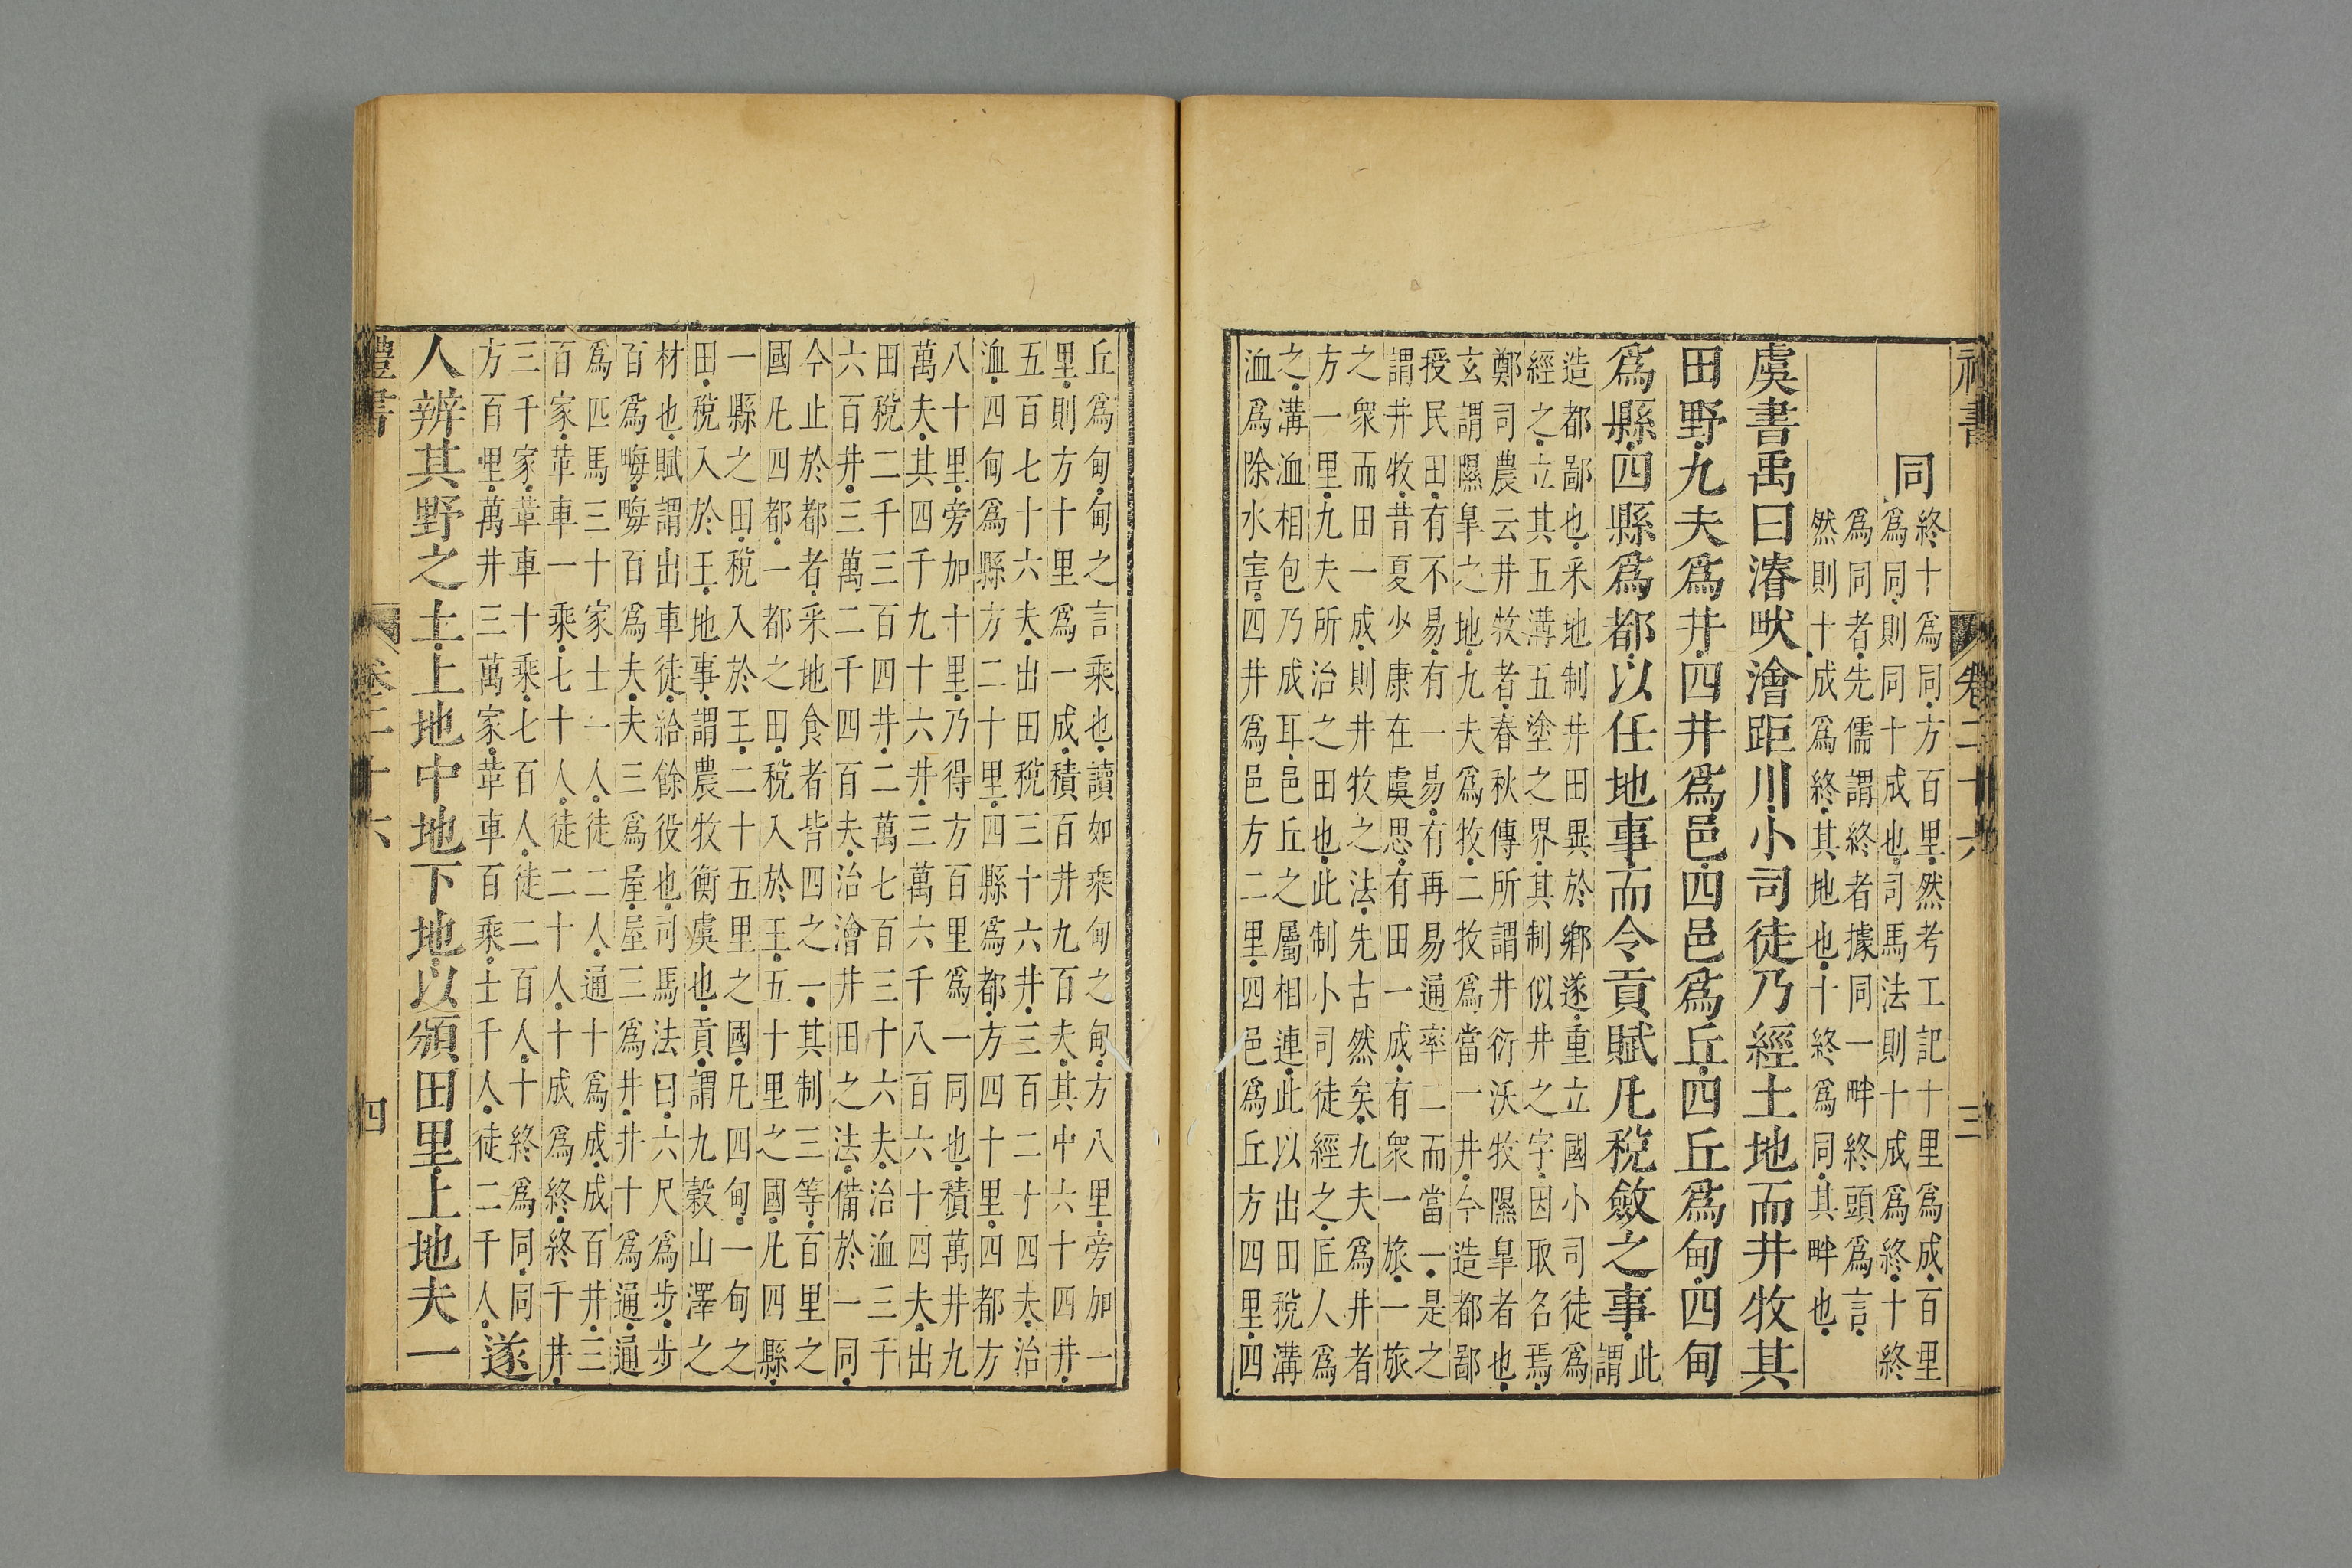 禮書 卷二十六 三
同
終十爲同方百里然考工記十里爲成百里
爲同則同十成也司馬法則十成爲終十終
爲同者先儒謂終者據同一畔終頭爲言
然則十成爲終其地也十終爲同其畔也
虞書禹曰濬畎澮距川小司徒乃經土地而井牧其
田野九夫爲井四井爲邑四邑爲丘四丘爲甸四甸
爲縣四縣爲都以任地事而令貢賦凡稅斂之事此
謂
造都鄙也采地制井田異於鄉遂重立國小司徒爲
經之立其五溝五塗之界其制似井之字因取名焉
鄭司農云井牧者春秋傳所謂井衍沃牧隰臯者也
玄謂隰臯之地九夫爲牧二牧爲當一井今造都鄙
授民田有不易有一易有再易通率二而當一是之
謂井牧昔夏少康在虞思有田一成有衆一旅一旅
之衆而田一成則井牧之法先古然矣九夫爲井者
方一里九夫所治之田也此制小司徒經之匠人爲
之溝洫相包乃成耳邑丘之屬相連此以出田稅溝
洫爲除水害四井爲邑方二里四邑爲丘方四里四
丘爲甸甸之言乘也讀如乘甸之甸方八里旁加一
里則方十里爲一成積百井九百夫其中六十四井
五百七十六夫出田稅三十六井三百二十四夫治
洫四甸爲縣方二十里四縣爲都方四十里四都方
八十里旁加十里乃得方百里爲一同也積萬井九
萬夫其四千九十六井三萬六千八百六十四夫出
田稅二千三百四井二萬七百三十六夫治洫三千
六百井三萬二千四百夫治澮井田之法備於一同
今止於都者采地食者皆四之一其制三等百里之
國凡四都一都之田稅入於王五十里之國凡四縣
一縣之田稅入於王二十五里之國凡四甸一甸之
田稅入於王地事謂農牧衡虞也貢謂九穀山澤之
材也賦謂出車徒給餘役也司馬法曰六尺爲步步
百爲畮畮百爲夫夫三爲屋屋三爲井井十爲通通
爲匹馬三十家士一人徒二人通十爲成成百井三
百家革車一乘七十人徒二十人十成爲終終千井
三千家革車十乘七百人徒二百人十終爲同同
方百里萬井三萬家革車百乘士千人徒二千人
遂
人辨其野之土上地中地下地以頒田里上地夫一
禮書 卷二十六 四